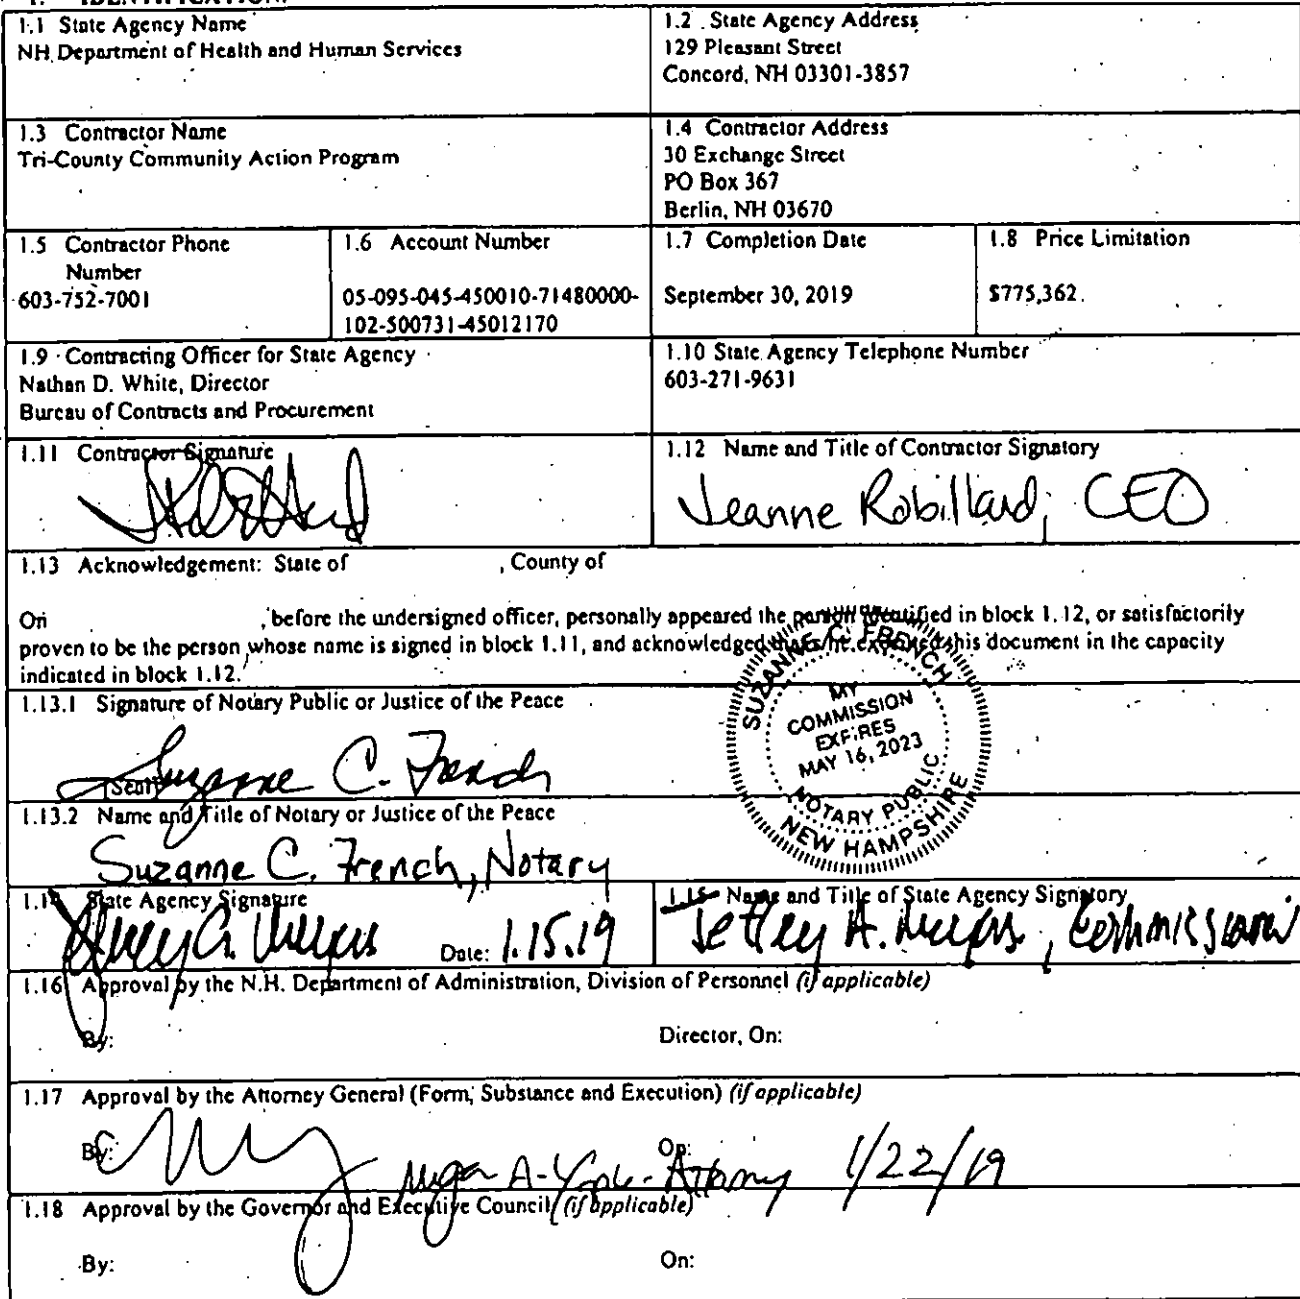 1. IDENTIFICATION.
1.1 State Agency Name
NH Department of Health and Human Services
1.2 State Agency Address
129 Pleasant Street
Concord, NH 03301-3857
1.3 Contractor Name
Tri-County Community Action Program
1.4 Contractor Address
30 Exchange Street
PO Box 367
Berlin, NH 03670
1.5 Contractor Phone
Number
603-752-7001
1.6 Account Number
05-095-045-450010-71480000-
102-500731-45012170
1.7 Completion Date
September 30, 2019
1.8 Price Limitation
$775,362.
1.9 Contracting Officer for State Agency
Nathan D. White, Director
Bureau of Contracts and Procurement
1.10 State Agency Telephone Number
603-271-9631
1.11 Contractor Signature
1.12 Name and Title of Contractor Signatory
Jeanne Robillard, CEO
1.13 Acknowledgement: State of , County of
On , before the undersigned officer, personally appeared the person identified in block 1.12, or satisfactorily
proven to be the person whose name is signed in block 1.11, and acknowledged that s/he executed this document in the capacity
indicated in block 1.12.
1.13.1 Signature of Notary Public or Justice of the Peace
Suzanne C. French
[Seal]
SUZANNE C. FRENCH
MY
COMMISSION
EXPIRES
MAY 16, 2023
NOTARY PUBLIC
NEW HAMPSHIRE
1.13.2 Name and Title of Notary or Justice of the Peace
Suzanne C. French, Notary
1.14 State Agency Signature
Date: 1.15.19
1.15 Name and Title of State Agency Signatory
Jeffrey A. Meyers, Commissioner
1.16 Approval by the N.H. Department of Administration, Division of Personnel (if applicable)
By: Director, On:
1.17 Approval by the Attorney General (Form, Substance and Execution) (if applicable)
By: On:
A. Yaple - Attorney 1/22/19
1.18 Approval by the Governor and Executive Council (if applicable)
By: On: